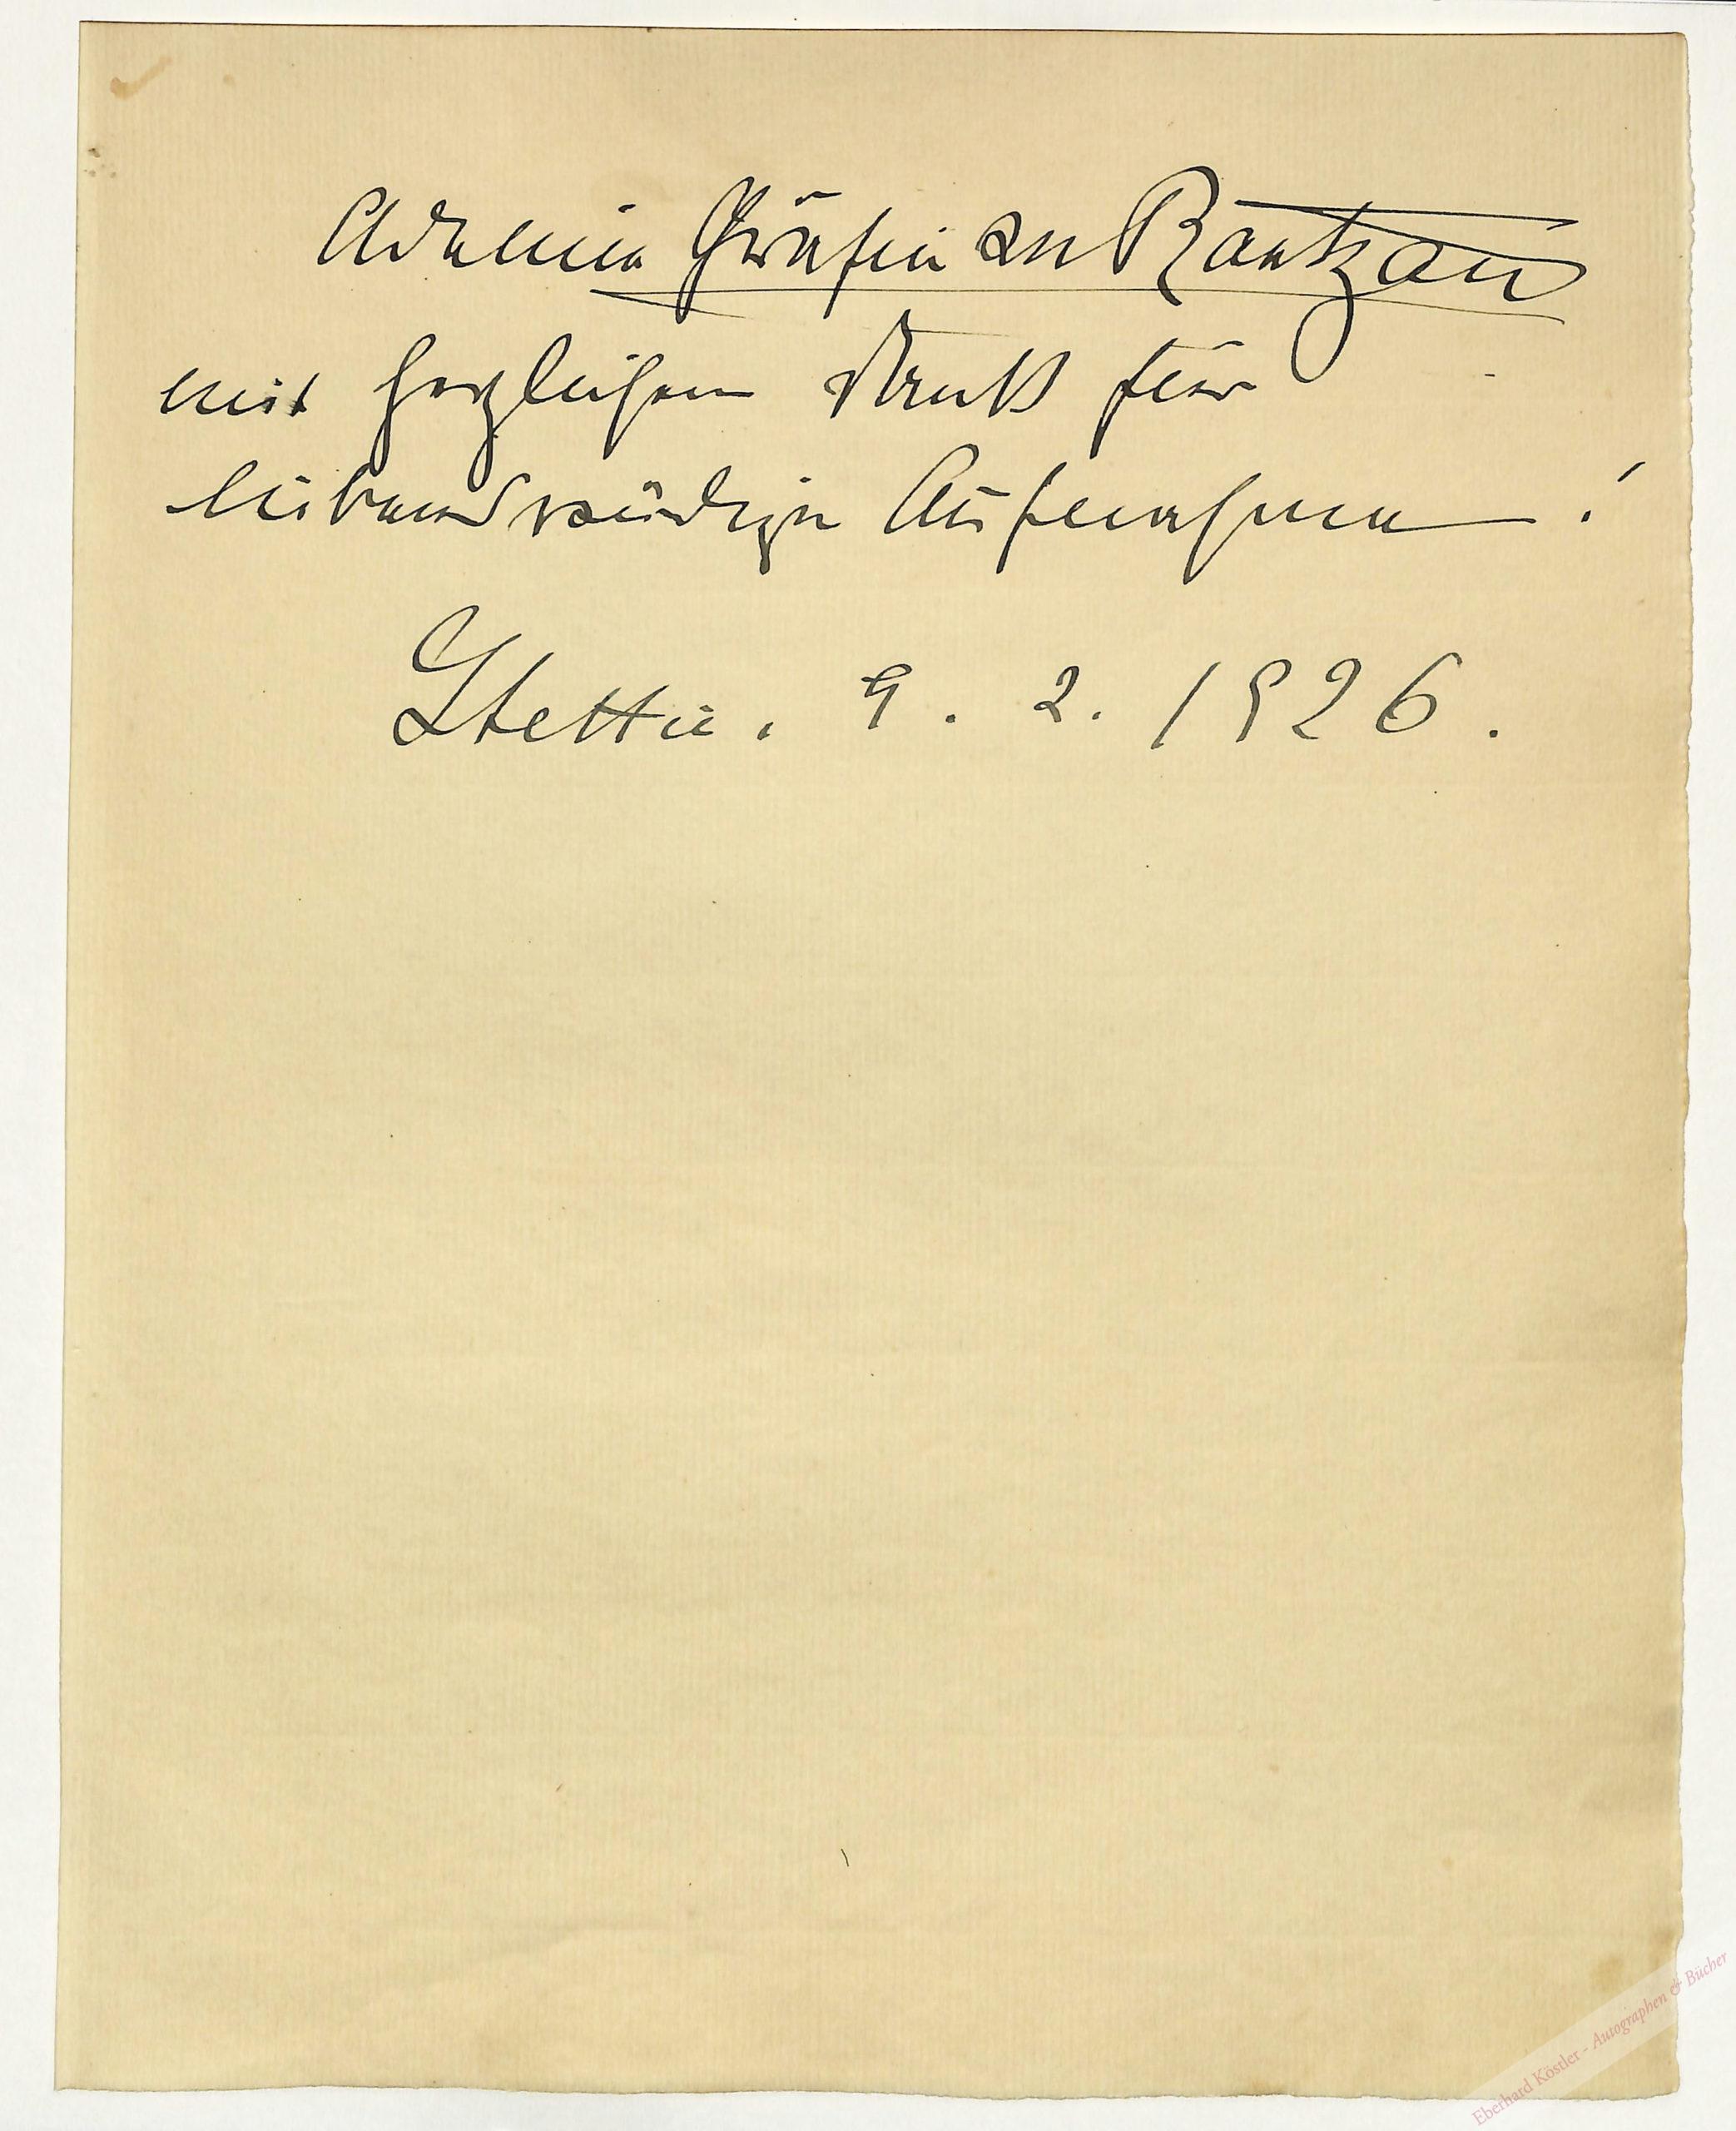 Adeline Gräfin zu Rantzau
mit herzlichem Dank für
liebenswürdige Aufnahme!
Stettin. 9. 2. 1926.
Eberhard Köstler - Autographen & Bücher